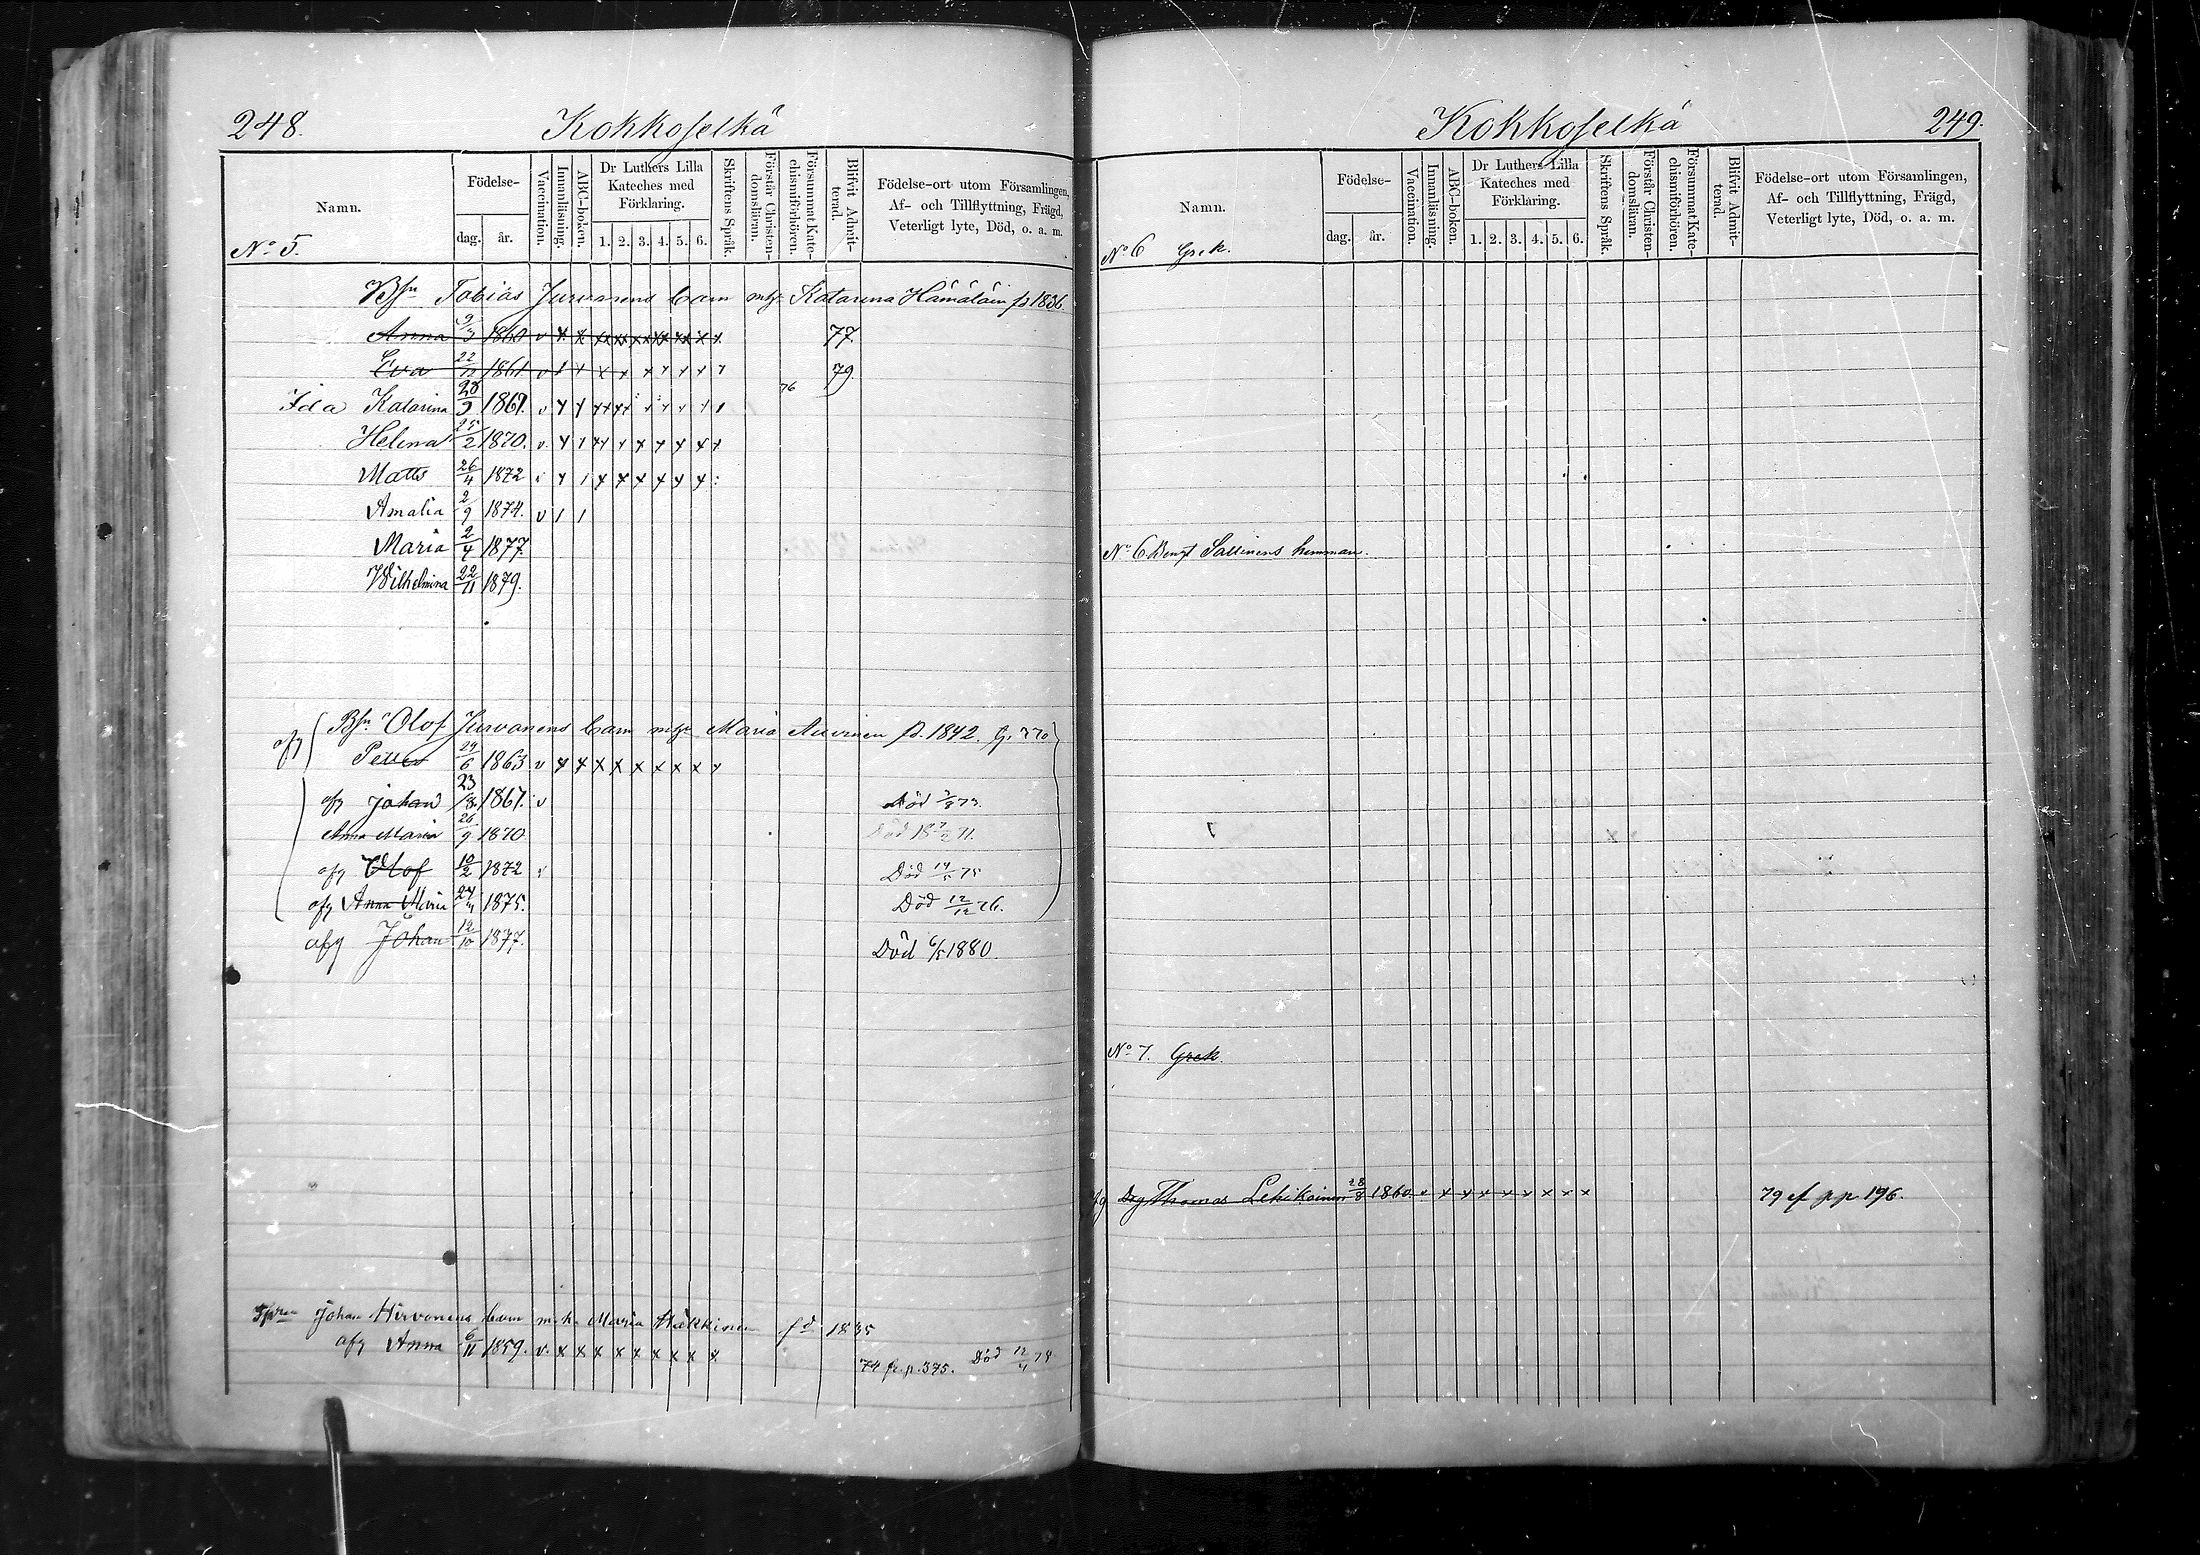 248. Kokkoselkä
Namn. Födelse- dag. år. Vaccination. Innanläsning. ABC-boken. Dr Luthers Lilla Kateches med Förklaring. 1. 2. 3. 4. 5. 6. Skriftens Språk. Förstår Christendomsläran. Försummat Katechismiförhören. Blifvit Admitterad. Födelse-ort utom Församlingen, Af- och Tillflyttning, Frägd, Veterligt lyte, Död, o. a. m.
No 5.
Bfn Tobias Jurvanens barn Katarina Hämäläin 1836.
Anna 1860 v x x xx xx xx xx xx x x 77.
Eva 22 1861 v x x x x x x x x 79.
76
Ida Katarina 28/9 1867. v
Helena 25/2 1870. v.
Matts 26/4 1872
Amalia 2/9 1874. v 1 1
Maria 2/4 1877.
Wilhelmina 22/11 1879.
Bfn Olof Jurvanens barn Maria Auvinen 1842.
afg
Petter 29/6 1863 v x x x x x x x x
afg Johan 23 1867. v Död 73.
Anna Maria 26/9 1870 Död 71.
afg Olof 10/2 1872 Död 14/5 75
afg Anna Maria 24 1875. Död 12/12 76.
afg Johan 12/10 1877. Död 6/5 1880.
Johan Hirvonens barn m. h. Maria Häkkinen fd 1835
afg Anna 6/11 1859. v. x x x x x x x x x. 74 fr. p. 375. Död 12/4 74
Kokkoselkä 249.
Namn. Födelse- dag. år. Vaccination. Innanläsning. ABC-boken. Dr Luthers Lilla Kateches med Förklaring. 1. 2. 3. 4. 5. 6. Skriftens Språk. Förstår Christendomsläran. Försummat Katechismiförhören. Blifvit Admitterad. Födelse-ort utom Församlingen, Af- och Tillflyttning, Frägd, Veterligt lyte, Död, o. a. m.
No 6 Grek.
No 6 Bengt Sallinens hemman.
No 7. Grek.
afg Drg Thomas Lehikoinen 28/8 1860 v x x x x x x x x 79 ef p p 196.